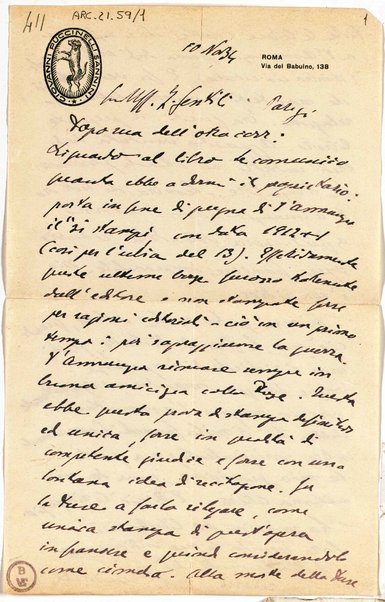 411
ARC. 21. 59/1
1
GIOVANNI PUCCINELLI SANNINI
10 Nov 34
ROMA
Via del Babuino, 138
Uff. Gentili Parigi
Dopo una dell'otto corr:
Riguardo al libro le comunico
quanto ebbe a dirmi il proprietario:
porta in fine di pugno di d'Annunzio
il "si stampi" con data 1912
(così per l'edia del 13). Effettivamente
queste ultime bozze furono trattenute
dall'editore e non stampate forse
per ragioni editoriali - ciò in un primo
tempo: poi sopraggiunse la guerra.
D'Annunzio rimase sempre in
buona amicizia colla Duse. Questa
ebbe questa prova di stampa definitiva
ed unica, forse in qualità di
competente giudice e forse con una
lontana idea di recitazione. Fu
la Duse a farlo rilegare, come
unica stampa di quest'opera
in francese e quindi considerandolo
come cimelio. Alla morte della Duse